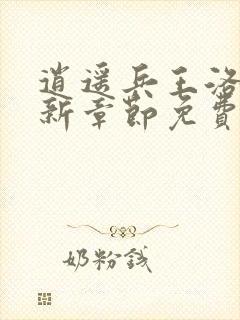 逍遥兵王洛
新章節免費
奶粉錢